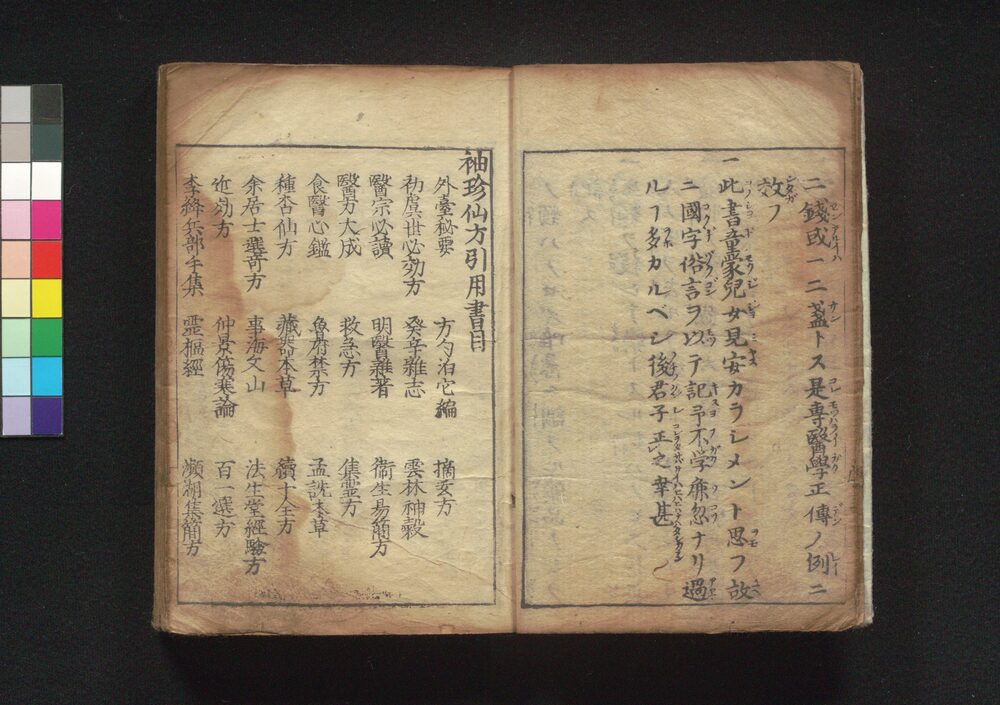 二錢或一二盞トス是専醫學正傳ノ例ニ
效フ
一此書童蒙兒女見安カラシメント思フ故
ニ國字俗言ヲ以テ記予不学麁忽ナリ過
ルフ多カルベシ後君子正之幸甚
袖珍仙方引用書目
外臺秘要 方勺泊宅編 摘玄方
初虞世必効方 癸辛雜志 雲林神彀
醫宗必讀 明醫雜著 衞生易簡方
醫方大成 救急方 集霊方
食醫心鑑 魚府禁方 孟詵本草
種杏仙方 藏器本草 續十全方
余居士選奇方 事海文山 法生堂經驗方
近効方 仲景傷寒論 百一選方
李絳兵部手集 霊樞經 瀕湖集簡方